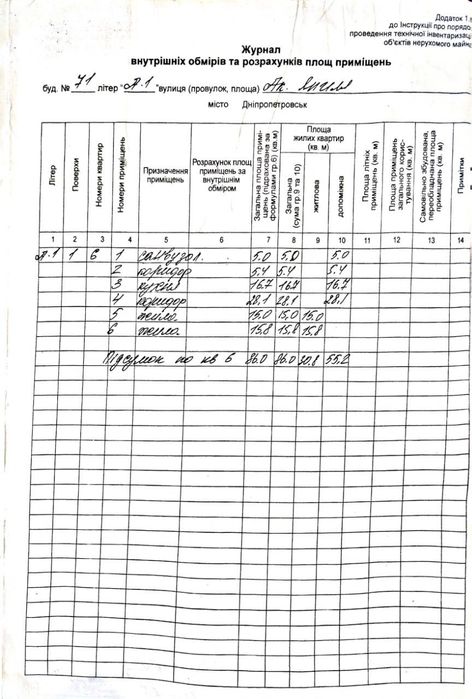 Додаток 1
до Інструкції про порядо
проведення технічної інвентаризаці
об'єктів нерухомого майн
Журнал
внутрішніх обмірів та розрахунків площ приміщень
буд. № 71 літер "А.1" вулиця (провулок, площа) Ак. Янгеля
місто Дніпропетровськ
Літер
Поверхи
Номери квартир
Номери приміщень
Призначення приміщень
Розрахунок площ приміщень за внутрішнім обміром
Загальна площа приміщень (підрахована за формулами гр.6) (кв.м)
Площа жилих квартир (кв. м)
Загальна (сума гр.9 та 10)
житлова
допоміжна
Площа літніх приміщень (кв. м)
Площа приміщень загального користування (кв. м)
Самовільно збудована, переобладнана площа приміщень (кв. м)
Примітки
1 2 3 4 5 6 7 8 9 10 11 12 13 14
А.1 1 6 1 санвузол 5.0 5.0 5.0
2 коридор 5.4 5.4 5.4
3 кухня 16.7 16.7 16.7
4 коридор 28.1 28.1 28.1
5 житло 15.0 15.0 15.0
6 житло 15.8 15.8 15.8
Підсумок по кв 6 86.0 86.0 30.8 55.2